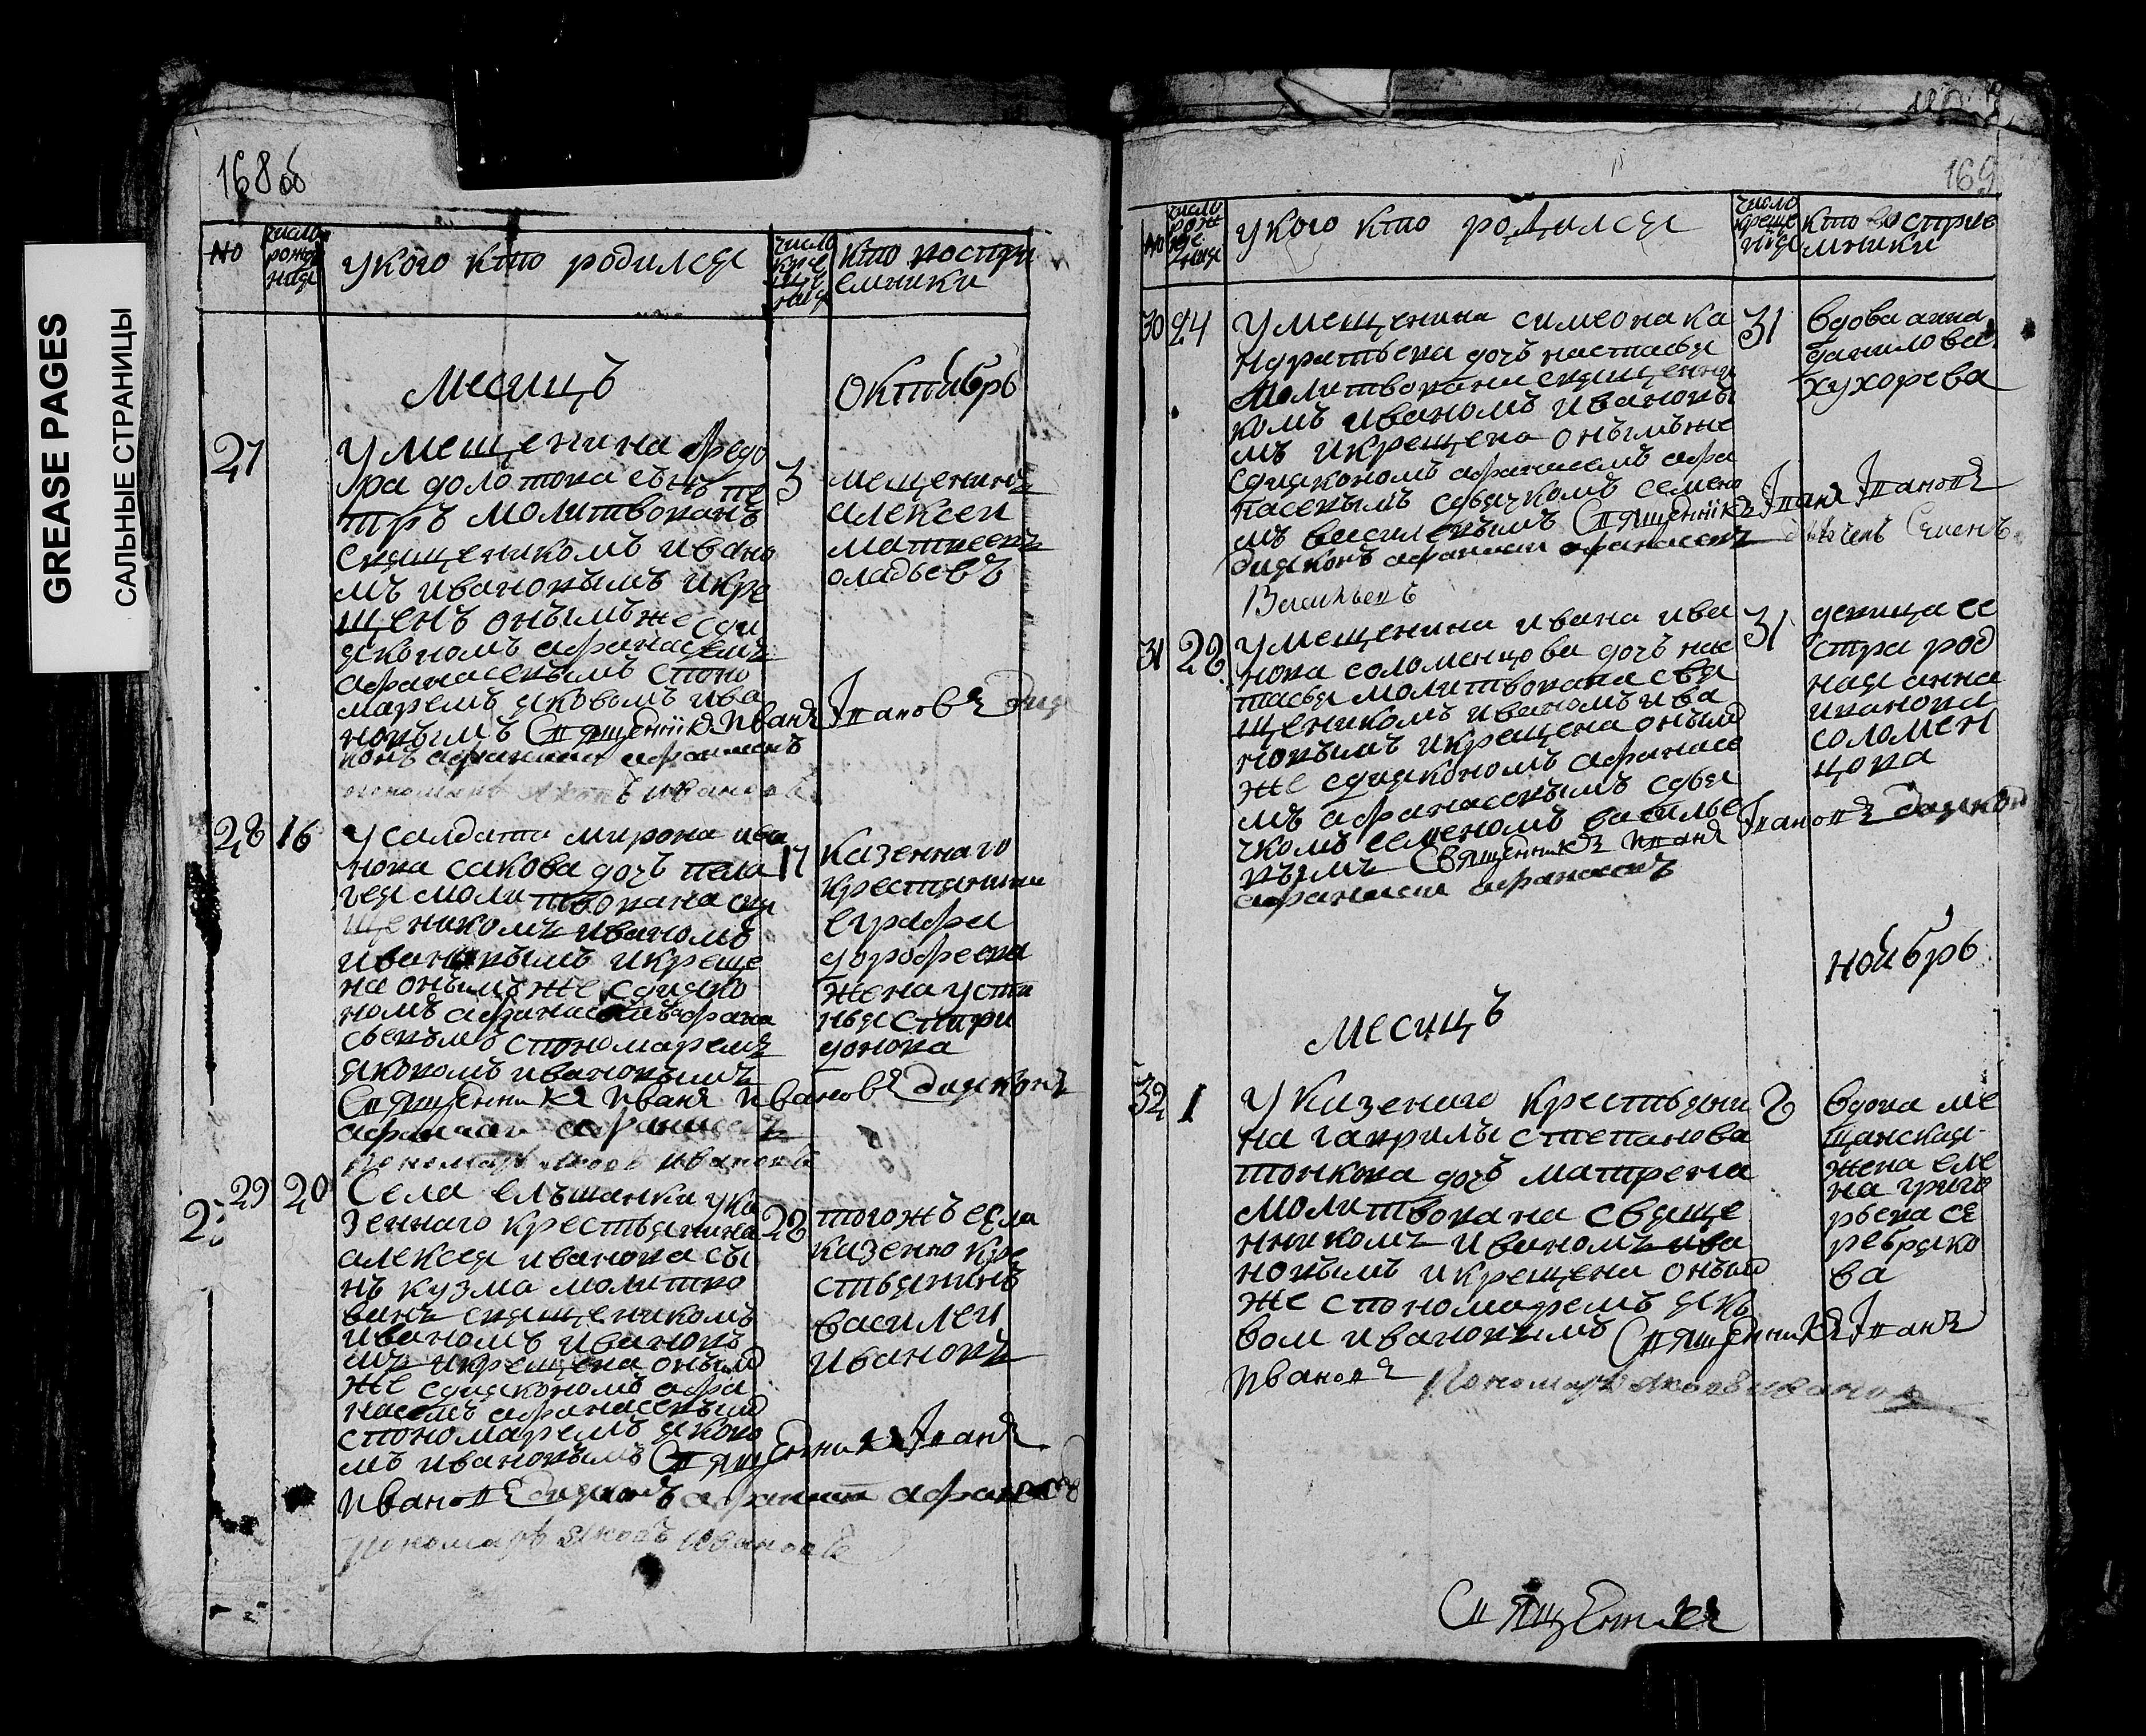 GREASE PAGES
САЛЬНЫЕ СТРАНИЦЫ
168 об
No
число рожде ния
укого кто родился
число кре ще ния
кто воспри
емники
месяцъ
октябрь
27
у мещенина федо
ра долотова сынъ пе
тръ молитвованъ
священикомъ ивано
мъ ивановымъ икре
щенъ онымъже сди
якономъ афанасемъ
афанасевымъ споно
маремъ яковомъ ива
новымъ Священникъ Иванъ Ивановъ дия
конъ афанасеи афанасевъ
пономарь яковъ ивановъ
3
мещенинъ
алексеи
матвеевъ
оладьевъ
28
16
у салдата мирона ива
нова сакова дочъ пела
гея молитвована свя
щеникомъ иваномъ
ивановымъ икреще
на онымъ же сдияко
номъ афанасемъ афана
севымъ спономаремъ
яковомъ ивановымъ
Священникъ Иванъ Ивановъ дияконъ
афанасеи афанасевъ
пономарь яковъ ивановъ
17
казеннаго
крестянина
еграфа
дорофеева
жена усти
нья спири
донова
29
20
Села елъшанки ука
зеннаго крестьянина
алексея иванова сы
нъ кузма молитво
ванъ священикомъ
иваномъ ивановы
мъ икрещена оным
же сдиякономъ афа
насемъ афанасевым
спономаремъ яково
мъ ивановымъ Священникъ Иванъ
Ивановъ дияконъ афанасеи афанасевъ
пономарь яковъ ивановъ
22
тогожъ села
казенно кре
стьянинъ
василеи
ивановъ
169
No
число рож де ния
укого кто родился
число креще ния
кто воспрее
мники
30
24
у мещенина симеона ка
ндратьева дочъ настасья
молитвована священни
комъ иваномъ ивановы
мъ икрещена онымъже
сдиякономъ афанасемъ афа
насевымъ сдьячкомъ семено
мъ василевымъ Священникъ Иванъ Ивановъ
дияконъ афанасеи афанасевъ дьячекъ Семенъ
Васильевъ
31
вдова анна
данилова
хухорева
31
22
у мещенина ивана ива
нова соломенцова дочъ нас
тасья молитвована свя
щеникомъ иваномъ ива
новымъ икрещена оным
же сдиякономъ афанасе
мъ афанасевымъ сдья
чкомъ семеномъ василье
вымъ Священникъ Иванъ Ивановъ дияконъ
афанасеи афанасевъ
31
девица се
стра род
ная анна
иванова
соломен
цова
месяцъ
ноябрь
32
1
у казенаго крестьяни
на гаврилы степанова
тонкова дочъ матрена
молитвована свяще
нникомъ иваномъ ива
новымъ икрещена оным
же спономаремъ яко
вом ивановымъ Священникъ Иванъ
Ивановъ Пономарь яковъ ивановъ
2
вдова ме
щанская
жена еле
на григо
рьева се
ребряко
ва
Священникъ